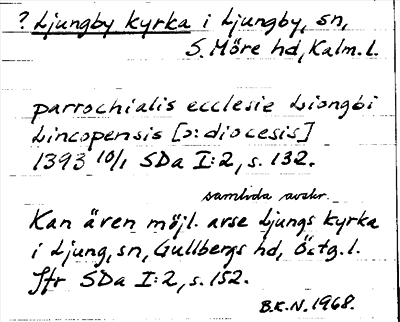 ? Ljungby kyrka i Ljungby, sn,
S. Möre hd, Kalm. l.
parrochialis ecclesie Liongbi
Lincopensis [ɔ: diocesis]
1393 10/1 SDa I:2, s. 132.
samtida avskr.
Kan även möjl. avse Ljungs kyrka
i Ljung, sn, Gullbergs hd, Östg. l.
Jfr SDa I:2, s. 152.
B.K.N. 1968.